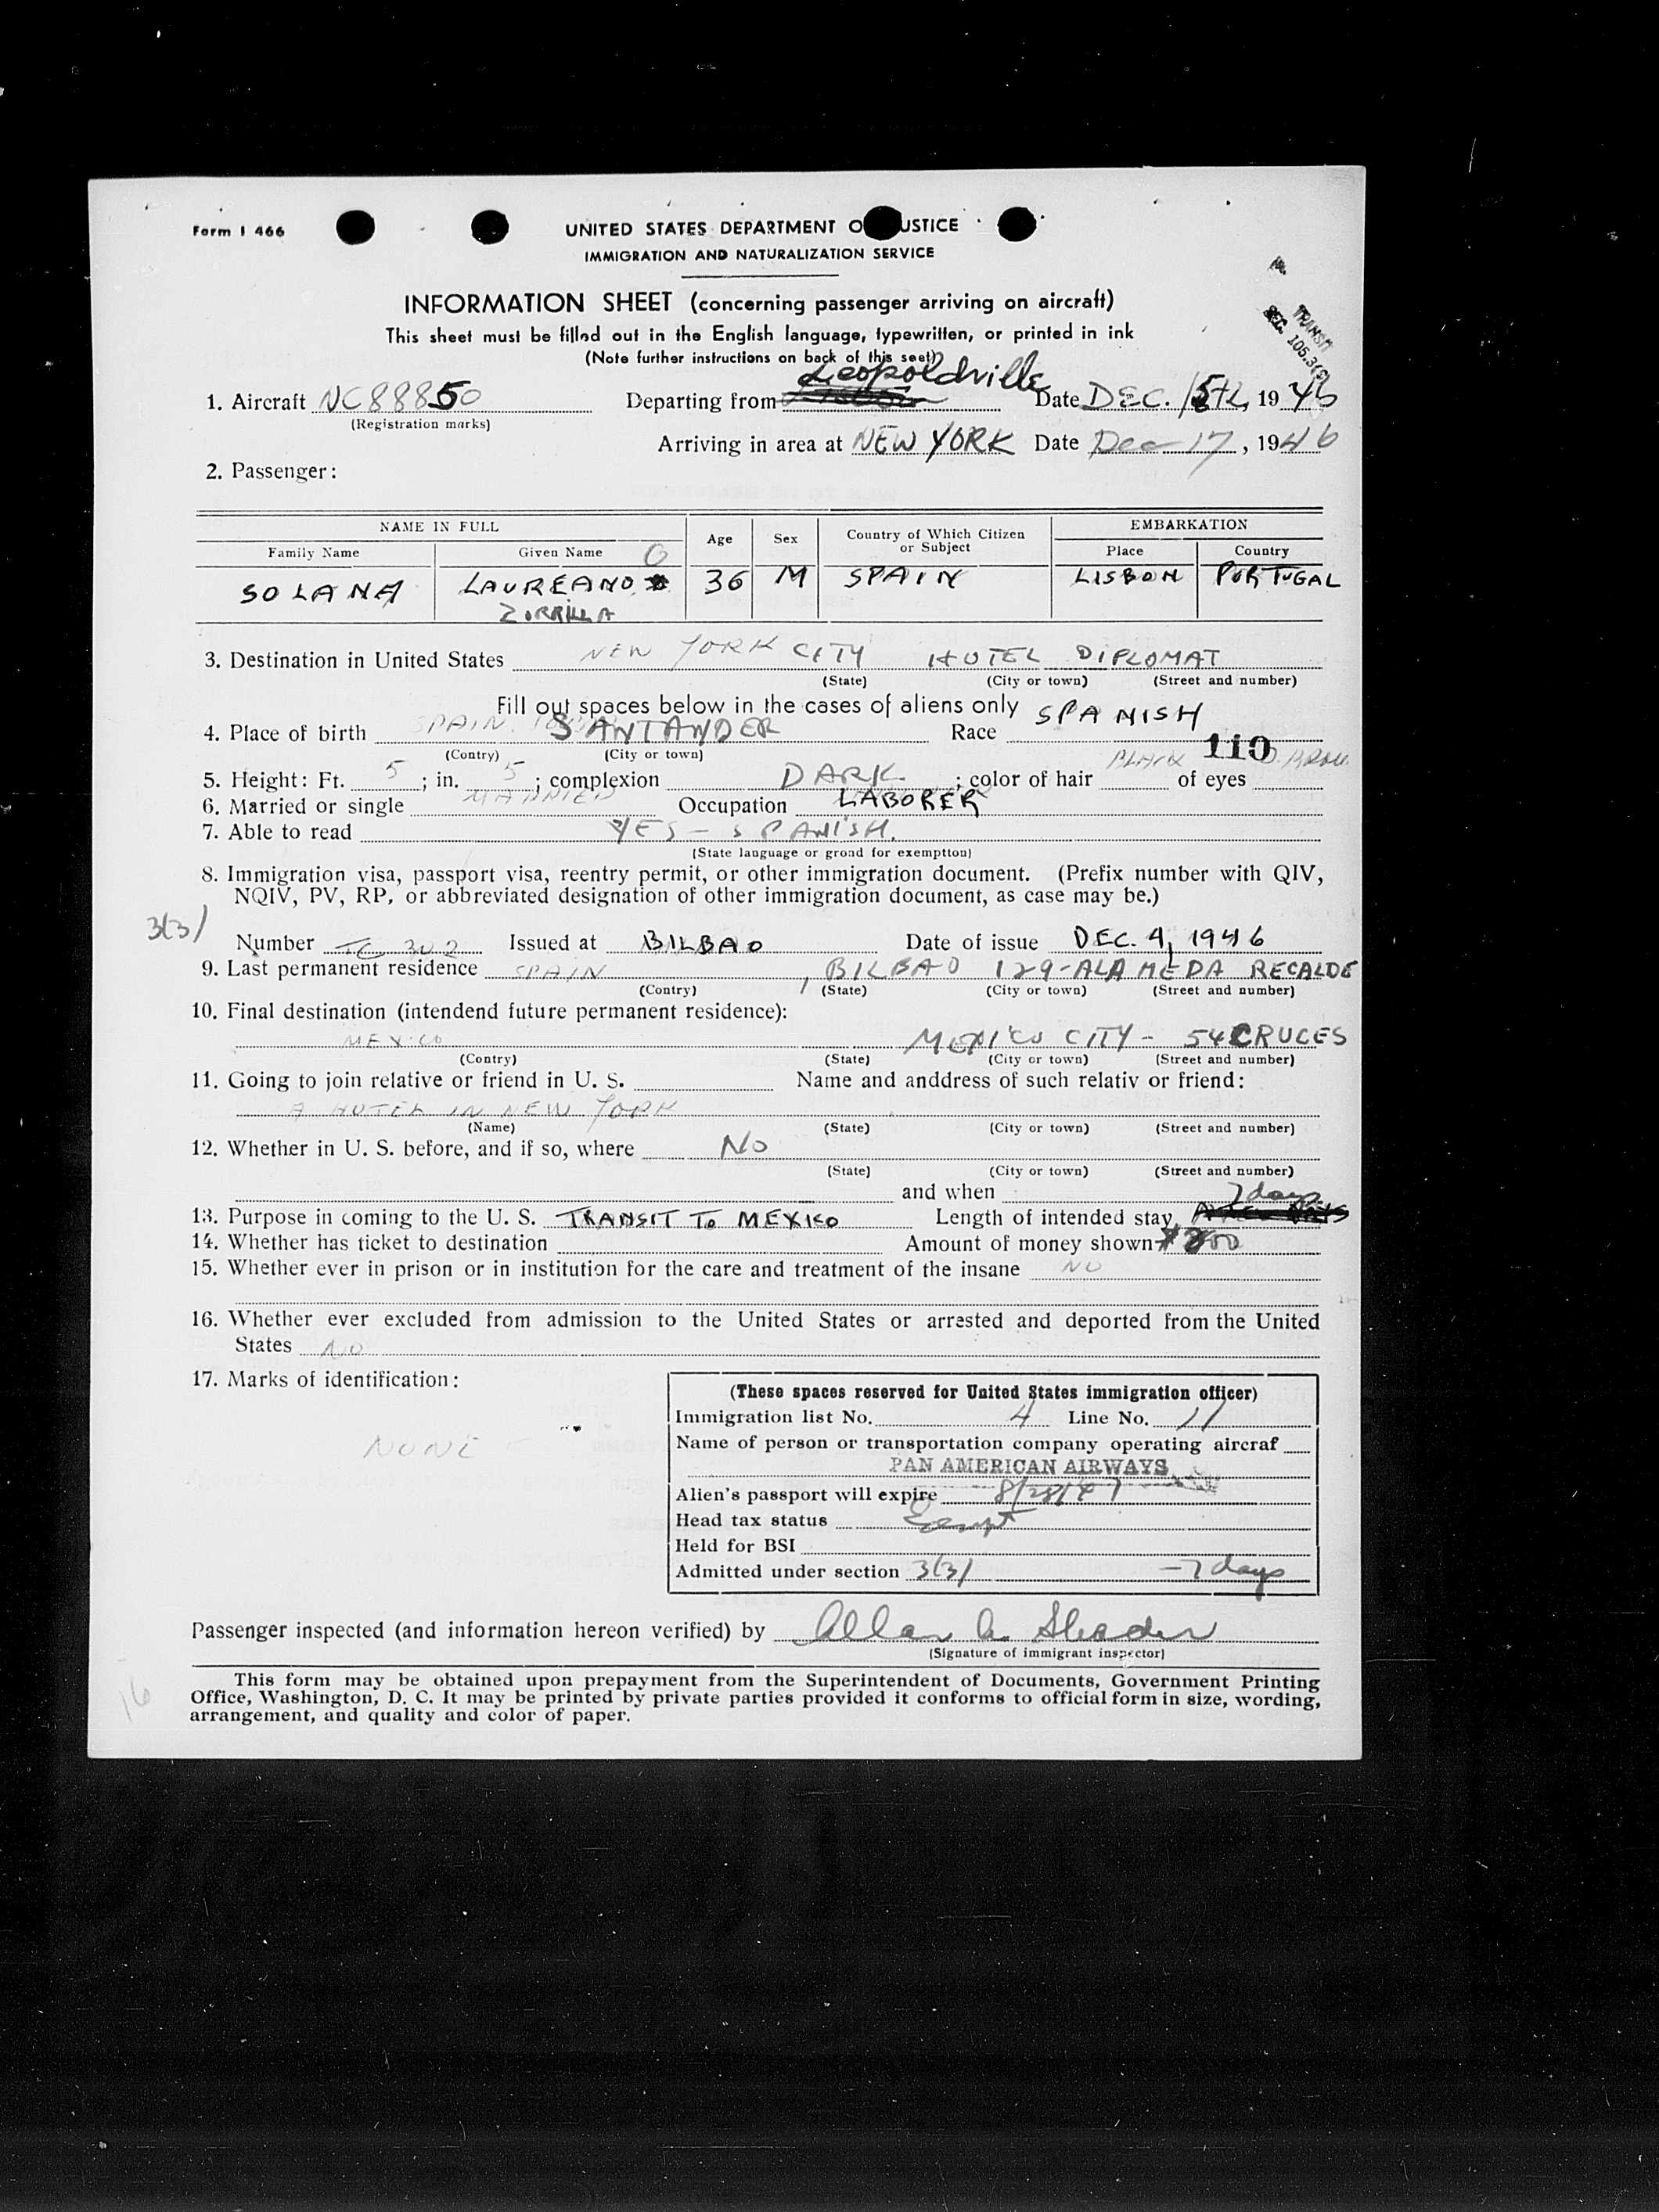 Form I 466
UNITED STATES DEPARTMENT O USTICE
IMMIGRATION AND NATURALIZATION SERVICE
INFORMATION SHEET (concerning passenger arriving on aircraft)
This sheet must be filled out in the English language, typewritten, or printed in ink
(Note further instructions on back of this seet)
TRANSIT
SEC. 105.3(9)
1. Aircraft NC88850 Departing from Leopoldville Date DEC. 15th, 1946
(Registration marks)
Arriving in area at NEW YORK Date Dec 17, 1946
2. Passenger:
NAME IN FULL Age Sex Country of Which Citizen or Subject EMBARKATION
Family Name Given Name Place Country
SOLANA LAUREANO 36 M SPAIN LISBON PORTUGAL
ZORRILLA
3. Destination in United States NEW YORK CITY HOTEL DIPLOMAT
(State) (City or town) (Street and number)
Fill out spaces below in the cases of aliens only
4. Place of birth SPAIN SANTANDER Race SPANISH
(Contry) (City or town)
110
5. Height: Ft. 5; in. 5; complexion DARK; color of hair BLACK of eyes
6. Married or single MARRIED Occupation LABORER
7. Able to read YES - SPANISH.
(State language or grond for exemption)
8. Immigration visa, passport visa, reentry permit, or other immigration document. (Prefix number with QIV,
NQIV, PV, RP, or abbreviated designation of other immigration document, as case may be.)
3(3)
Number TC 302 Issued at BILBAO Date of issue DEC. 4, 1946
9. Last permanent residence SPAIN, BILBAO 129-ALAMEDA RECALDE
(Contry) (State) (City or town) (Street and number)
10. Final destination (intendend future permanent residence):
MEXICO MEXICO CITY - 54 CRUCES
(Contry) (State) (City or town) (Street and number)
11. Going to join relative or friend in U. S. Name and anddress of such relativ or friend:
A HOTEL IN NEW YORK
(Name) (State) (City or town) (Street and number)
12. Whether in U. S. before, and if so, where NO
(State) (City or town) (Street and number)
and when
7 days
13. Purpose in coming to the U. S. TRANSIT TO MEXICO Length of intended stay
14. Whether has ticket to destination Amount of money shown $200
15. Whether ever in prison or in institution for the care and treatment of the insane NO
16. Whether ever excluded from admission to the United States or arrested and deported from the United
States NO
17. Marks of identification:
NONE
(These spaces reserved for United States immigration officer)
Immigration list No. 4 Line No. 11
Name of person or transportation company operating aircraf
PAN AMERICAN AIRWAYS
Alien's passport will expire 8/28/47
Head tax status Exempt
Held for BSI
Admitted under section 3(3) - 7 days
Passenger inspected (and information hereon verified) by Allan
(Signature of immigrant inspector)
16
This form may be obtained upon prepayment from the Superintendent of Documents, Government Printing
Office, Washington, D. C. It may be printed by private parties provided it conforms to official form in size, wording,
arrangement, and quality and color of paper.